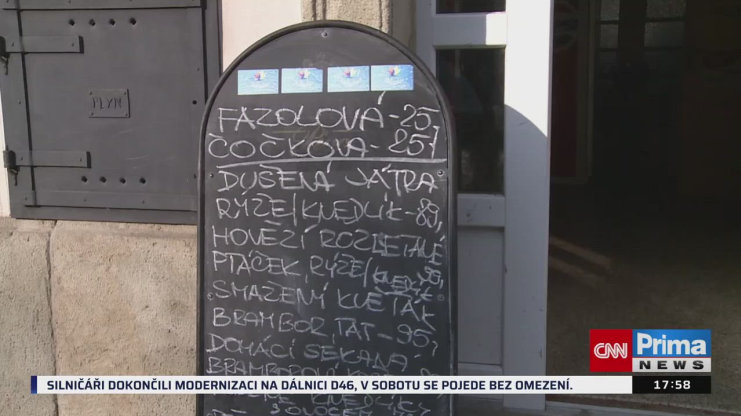 PLYN
FAZOLOVÁ-25,
ČOČKOVA-25,
DUŠENÁ JÁTRA
RÝŽE/KNEDLÍK-89,
HOVĚZÍ ROZLETANÉ
PTÁČEK RÝŽE/KNEDLÍK
SMAŽENÝ KVĚTÁK
BRAMBOR TAT-95,
DOMÁCÍ SEKANÁ
CNN Prima
NEWS
SILNIČÁŘI DOKONČILI MODERNIZACI NA DÁLNICI D46, V SOBOTU SE POJEDE BEZ OMEZENÍ. 17:58